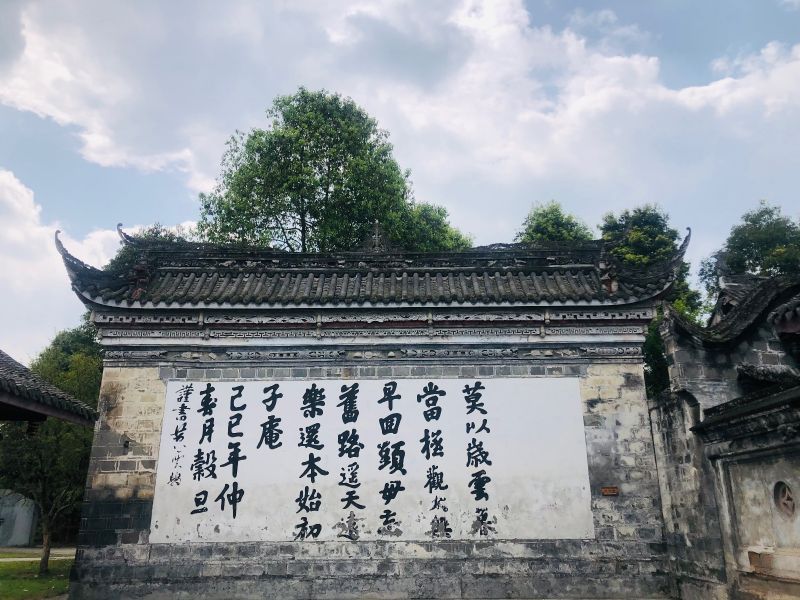 莫以歲雲暮
當極觀
早回頭毋忘
舊路遥天
樂還本始初
子庵
己巳年仲
春月穀旦
謹書